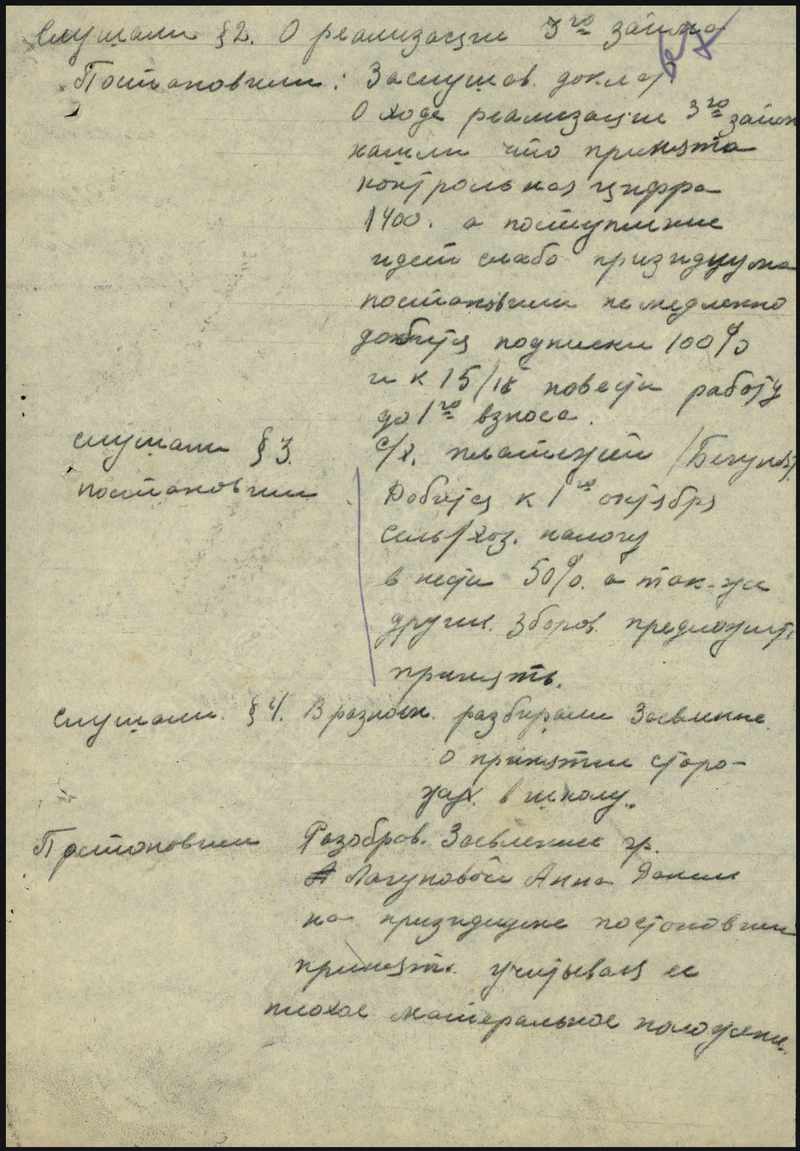 Слушали §2. О реализации 3го займа
67
Постановили: Заслушав. доклад
О ходе реализации 3го займа
нашли что принята
контрольная цифра
1400. а поступление
идет слабо призидиума
постановили немедленно
добится подписки 100%
и к 15/IX повести работу
до 1го взноса.
слушали §3. с/х. платежей
постановили Добится к 1го октября
сель/хоз. налогу
внести 50%. а так-же
других. зборов. предложить
принять.
слушали. §4. В разном. разбирали Заевление
о принятии сторо-
жах. в школу.
Постановили Разобров. Заевление гр.
Лагуновой Анна Данил
на призидиуме постоновили
принять. учитывая ее
плохое материальное положение.